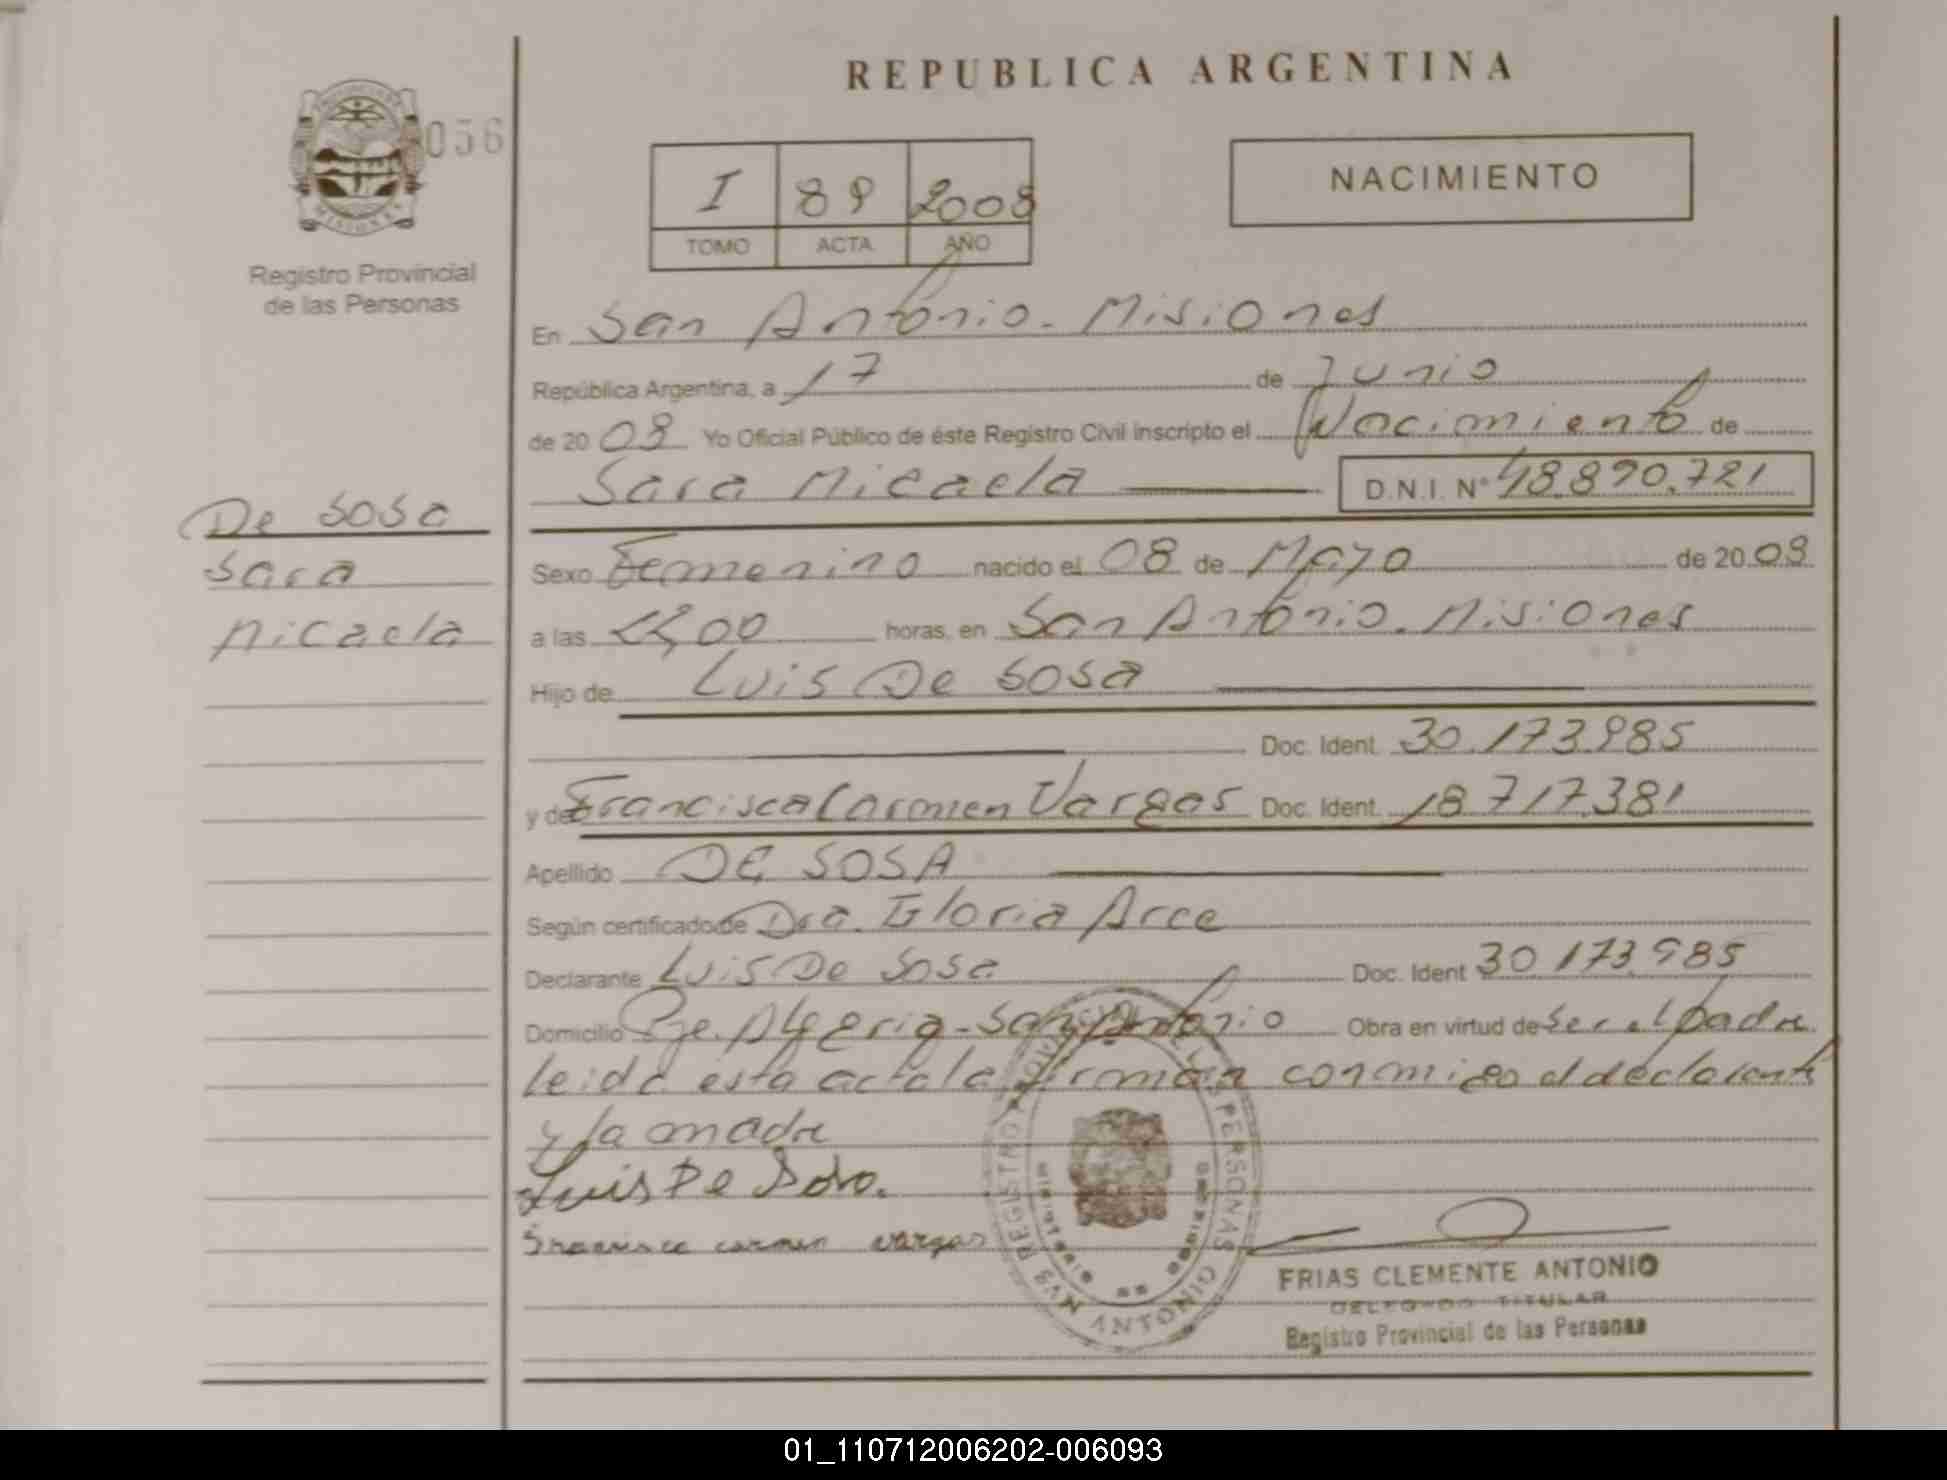 REPUBLICA ARGENTINA
056
PROVINCIA DE
MISIONES
Registro Provincial
de las Personas
I 89 2008
TOMO ACTA AÑO
NACIMIENTO
En San Antonio - Misiones
República Argentina, a 17 de Junio
de 20 08 Yo Oficial Público de éste Registro Civil inscripto el Nacimiento de
Sara Micaela D.N.I. Nº 48.890.721
De Sosa
Sara
Micaela
Sexo Femenino nacido el 08 de Mayo de 20 08
a las horas, en San Antonio. Misiones
Hijo de Luis De Sosa
Doc. Ident. 30.173.985
y de Francisca Carmen Vargas Doc. Ident. 18.717.381
Apellido DE SOSA
Según certificado de Dra. Gloria Arce
Declarante Luis De Sosa Doc. Ident 30.173.985
Domicilio Pje. Algeria - San Antonio Obra en virtud de Ser el padre
leida esta acta la firman conmigo el declarante
y la madre
Luis De Soso.
Francisca carmen vargas
REGISTRO PROVINCIAL DE LAS PERSONAS
MINISTERIO DE GOBIERNO
SAN ANTONIO
FRIAS CLEMENTE ANTONIO
DELEGADO TITULAR
Registro Provincial de las Personas
01_110712006202-006093